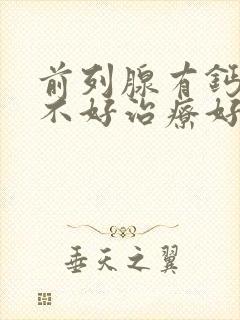 前列腺有鈣
不好治療好
垂天之翼